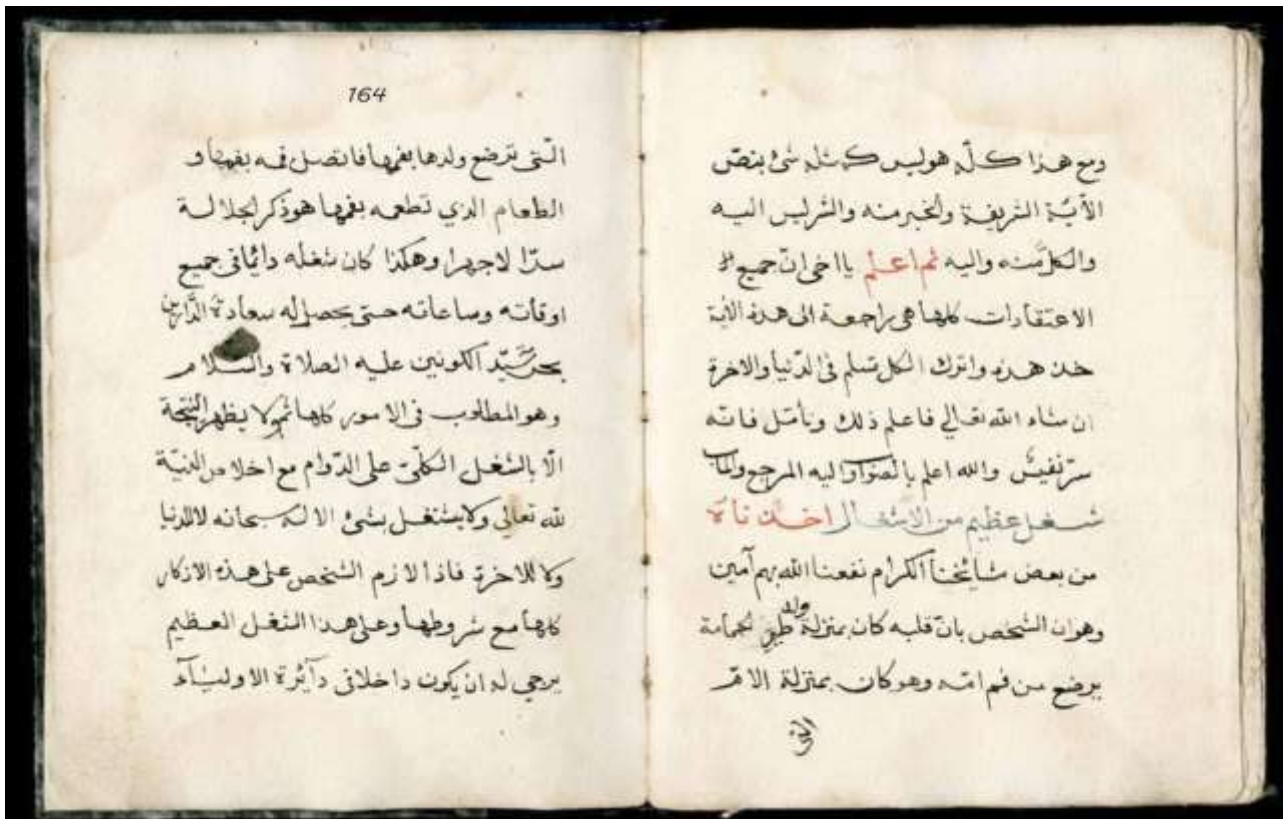 ومع هذا كلّه هو ليس كمثله شئ بنصّ
الأيّة الشريفة والخير منه والشر ليس اليه
والكل منه واليه ثم اعلم يا اخى انّ جميع
الاعتقادات كلها هى راجعة الى هذه الأية
خذ هذه واترك الكل تسلم فى الدّنيا والاخرة
ان شاء الله تعالي فاعلم ذلك وتأمّل فانّه
سرّ نفيس والله اعلم بالصواب واليه المرجع والمأب
شغل عظيم من الاشغال اخذناه
من بعض مشائخنا الكرام نفعنا الله بهم آمين
وهو ان الشخص بانّ قلبه كان بمنزلة ولد طير لحمامة
يرضع من فم امّه وهو كان بمنزلة الامّ
التى
164
الّتى ترضع ولدها بفمها فاتصل فمه بفمها و
الطعام الذي تطعمه بفمها هو ذكر الجلالة
سرّا لا جهرا وهكذا كان شغله دائما فى جميع
اوقاته وساعاته حتى يحصل له سعادة الدّارين
بحق سيّد الكونين عليه الصلاة والسلام
وهو المطلوب فى الامور كلها ثم لا يظهر النتيجة
الّا بالشغل الكلّىّ على الدّوام مع اخلاص النيّة
لله تعالي ولا يشتغل بشئ الا له سبحانه لا للدنيا
ولا للاخرة فاذا لازم الشخص على هذه الاذكار
كلها مع شروطها وعلى هذا الشغل العظيم
يرجي له ان يكون داخلا فى دآئرة الاوليآء